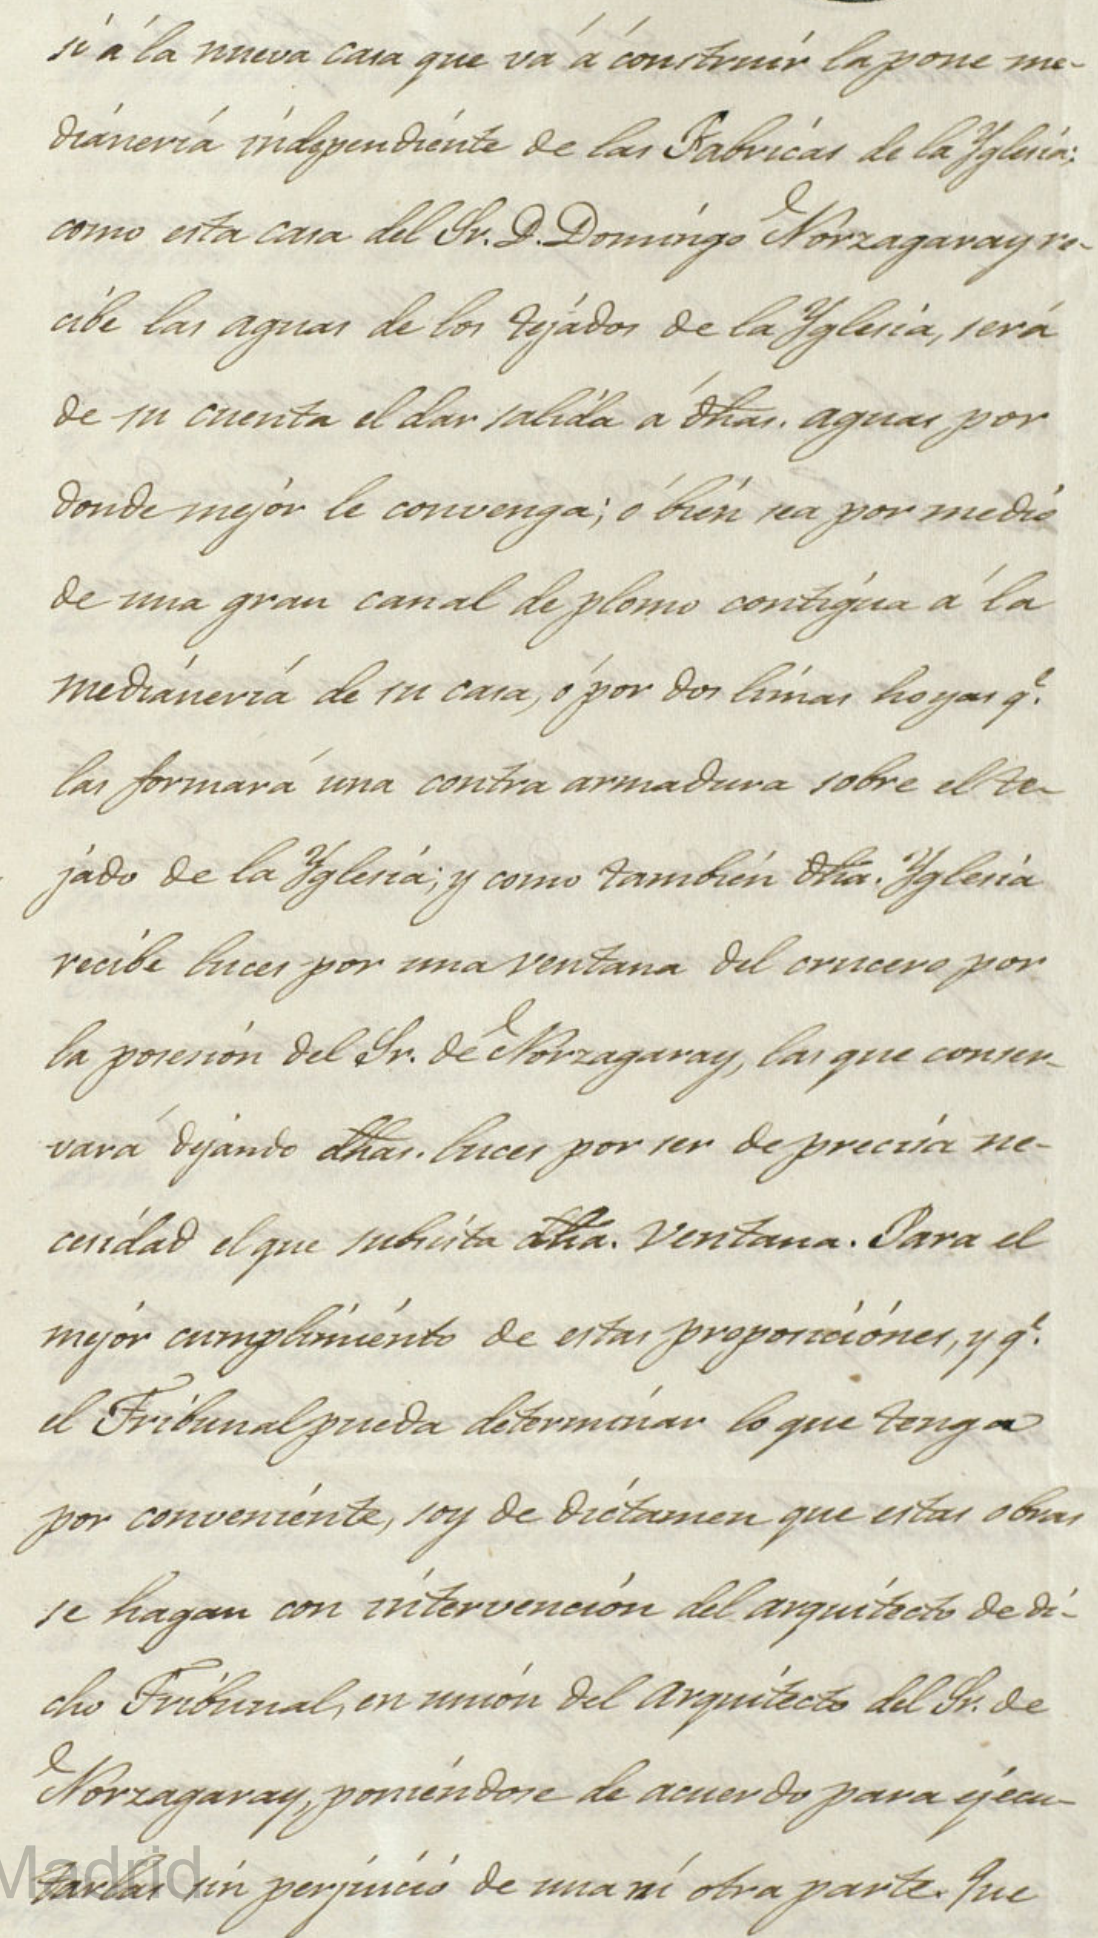 si á la nueva casa que vá á construir la pone me-
dianería independiente de las Fabricas de la Yglesia;
como esta casa del Sr. D. Domingo Norzagaray re-
cibe las aguas de los tejados de la Yglesia, será
de su cuenta el dar salida á dhas. aguas por
donde mejor le convenga; ó bien sea por medio
de una gran canal de plomo contigua á la
medianería de su casa, ó por dos limas hoyas q.e
las formará una contra armadura sobre el te-
jado de la Yglesia; y como tambien dha. Yglesia
recibe luces por una ventana del crucero por
la posesión del Sr. de Norzagaray, las que conser-
vará dejando dhas. luces por ser de precisa ne-
cesidad el que subsista dha. Ventana. Para el
mejor cumplimiento de estas proposiciónes, y q.e
el Tribunal pueda determinar lo que tenga
por conveniente, soy de dictamen que estas obras
se hagan con intervención del arquitecto de di-
cho Tribunal, en unión del Arquitecto del Sr. de
Norzagaray, poniendose de acuerdo para ejecu-
tarlas sin perjuicio de una ni otra parte. Que
Madrid